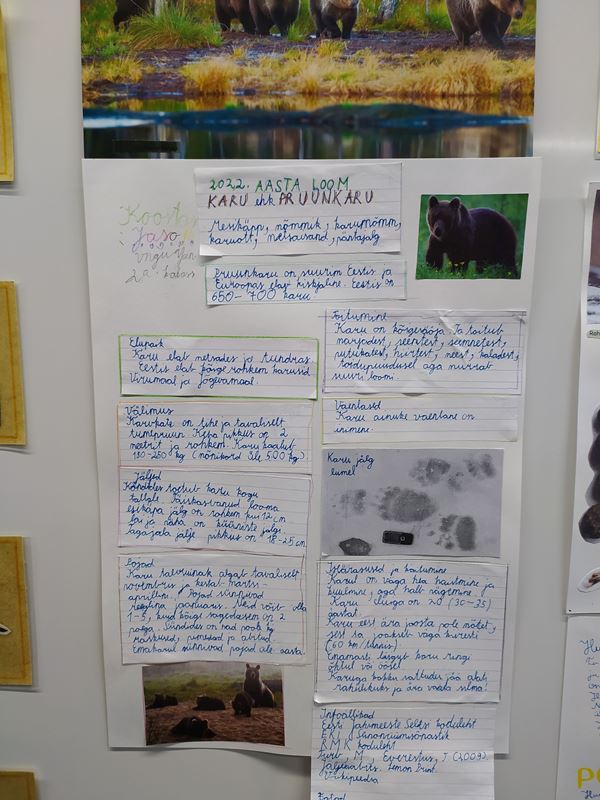 2022. AASTA LOOM
KARU ehk PRUUNKARU
Mesikäpp, nõmmik, karumõmm,
karuott, metsavend, pätsjalg
Koosta
Jaso
2.a klass
Pruunkaru on suurim Eestis ja
Euroopas elav kiskjaline. Eestis on
650-700 karu.
Elupaik
Karu elab metsades ja tundras.
Eestis elab kõige rohkem karusid
Virumaal ja Jõgevamaal.
Välimus
Karukate on tihe ja tavaliselt
tumepruun. Keha pikkus on 2
meetrit ja rohkem. Karu kaalub
180-250 kg (mõnikord üle 500 kg)
Jäljed
Kõndides toetub karu kogu
tallale. Täiskasvanud looma
esikäpa jälg on rohkem kui 12 cm
lai ja näha on küüniste jälgi.
Tagajala jälje pikkus on 18-25 cm.
Pojad
Karu taliuinak algab tavaliselt
novembris ja kestab märtsi-
aprillini. Pojad sünnivad
reeglina jaanuaris. Neid võib olla
1-5, kuid kõige sagedasem on 2
poega. Sündides on nad pool kg
rasked, pimedad ja abitud.
Emakarul sünnivad pojad üle aasta.
Toitumine
Karu on kõigesööja. Ta toitub
marjadest, seentest, seemnetest,
putukatest, hiirtest, meest, kaladest,
toidupuudusel aga murrab
suuri loomi.
Vaenlased
Karu ainuke vaenlane on
inimene.
Karu jälg
lumel
Iseärasused ja kaitumine
Karul on väga hea haistmine ja
kuulmine, aga halb nägemine.
Karu eluiga on 20 (30-35)
aastat.
Karu eest ära joosta pole mõtet,
sest ta jookseb väga kiiresti
(60 km/tunnis)
Enamasti liigub karu ringi
õhtul või öösel.
Karuga kokku sattudes jää alati
rahulikuks ja ära vaata silma!
Infoallikad
Eesti Jahimeeste Seltsi koduleht
EKI Sünonüümisõnastik
RMK koduleht
M., Everestus, J. (2009).
Jäljeaabits. Lemon Print.
Vikipeedia
Fotod